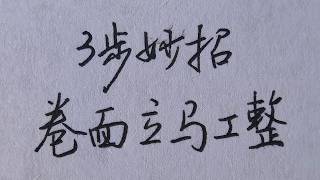 3步妙招
卷面立马工整